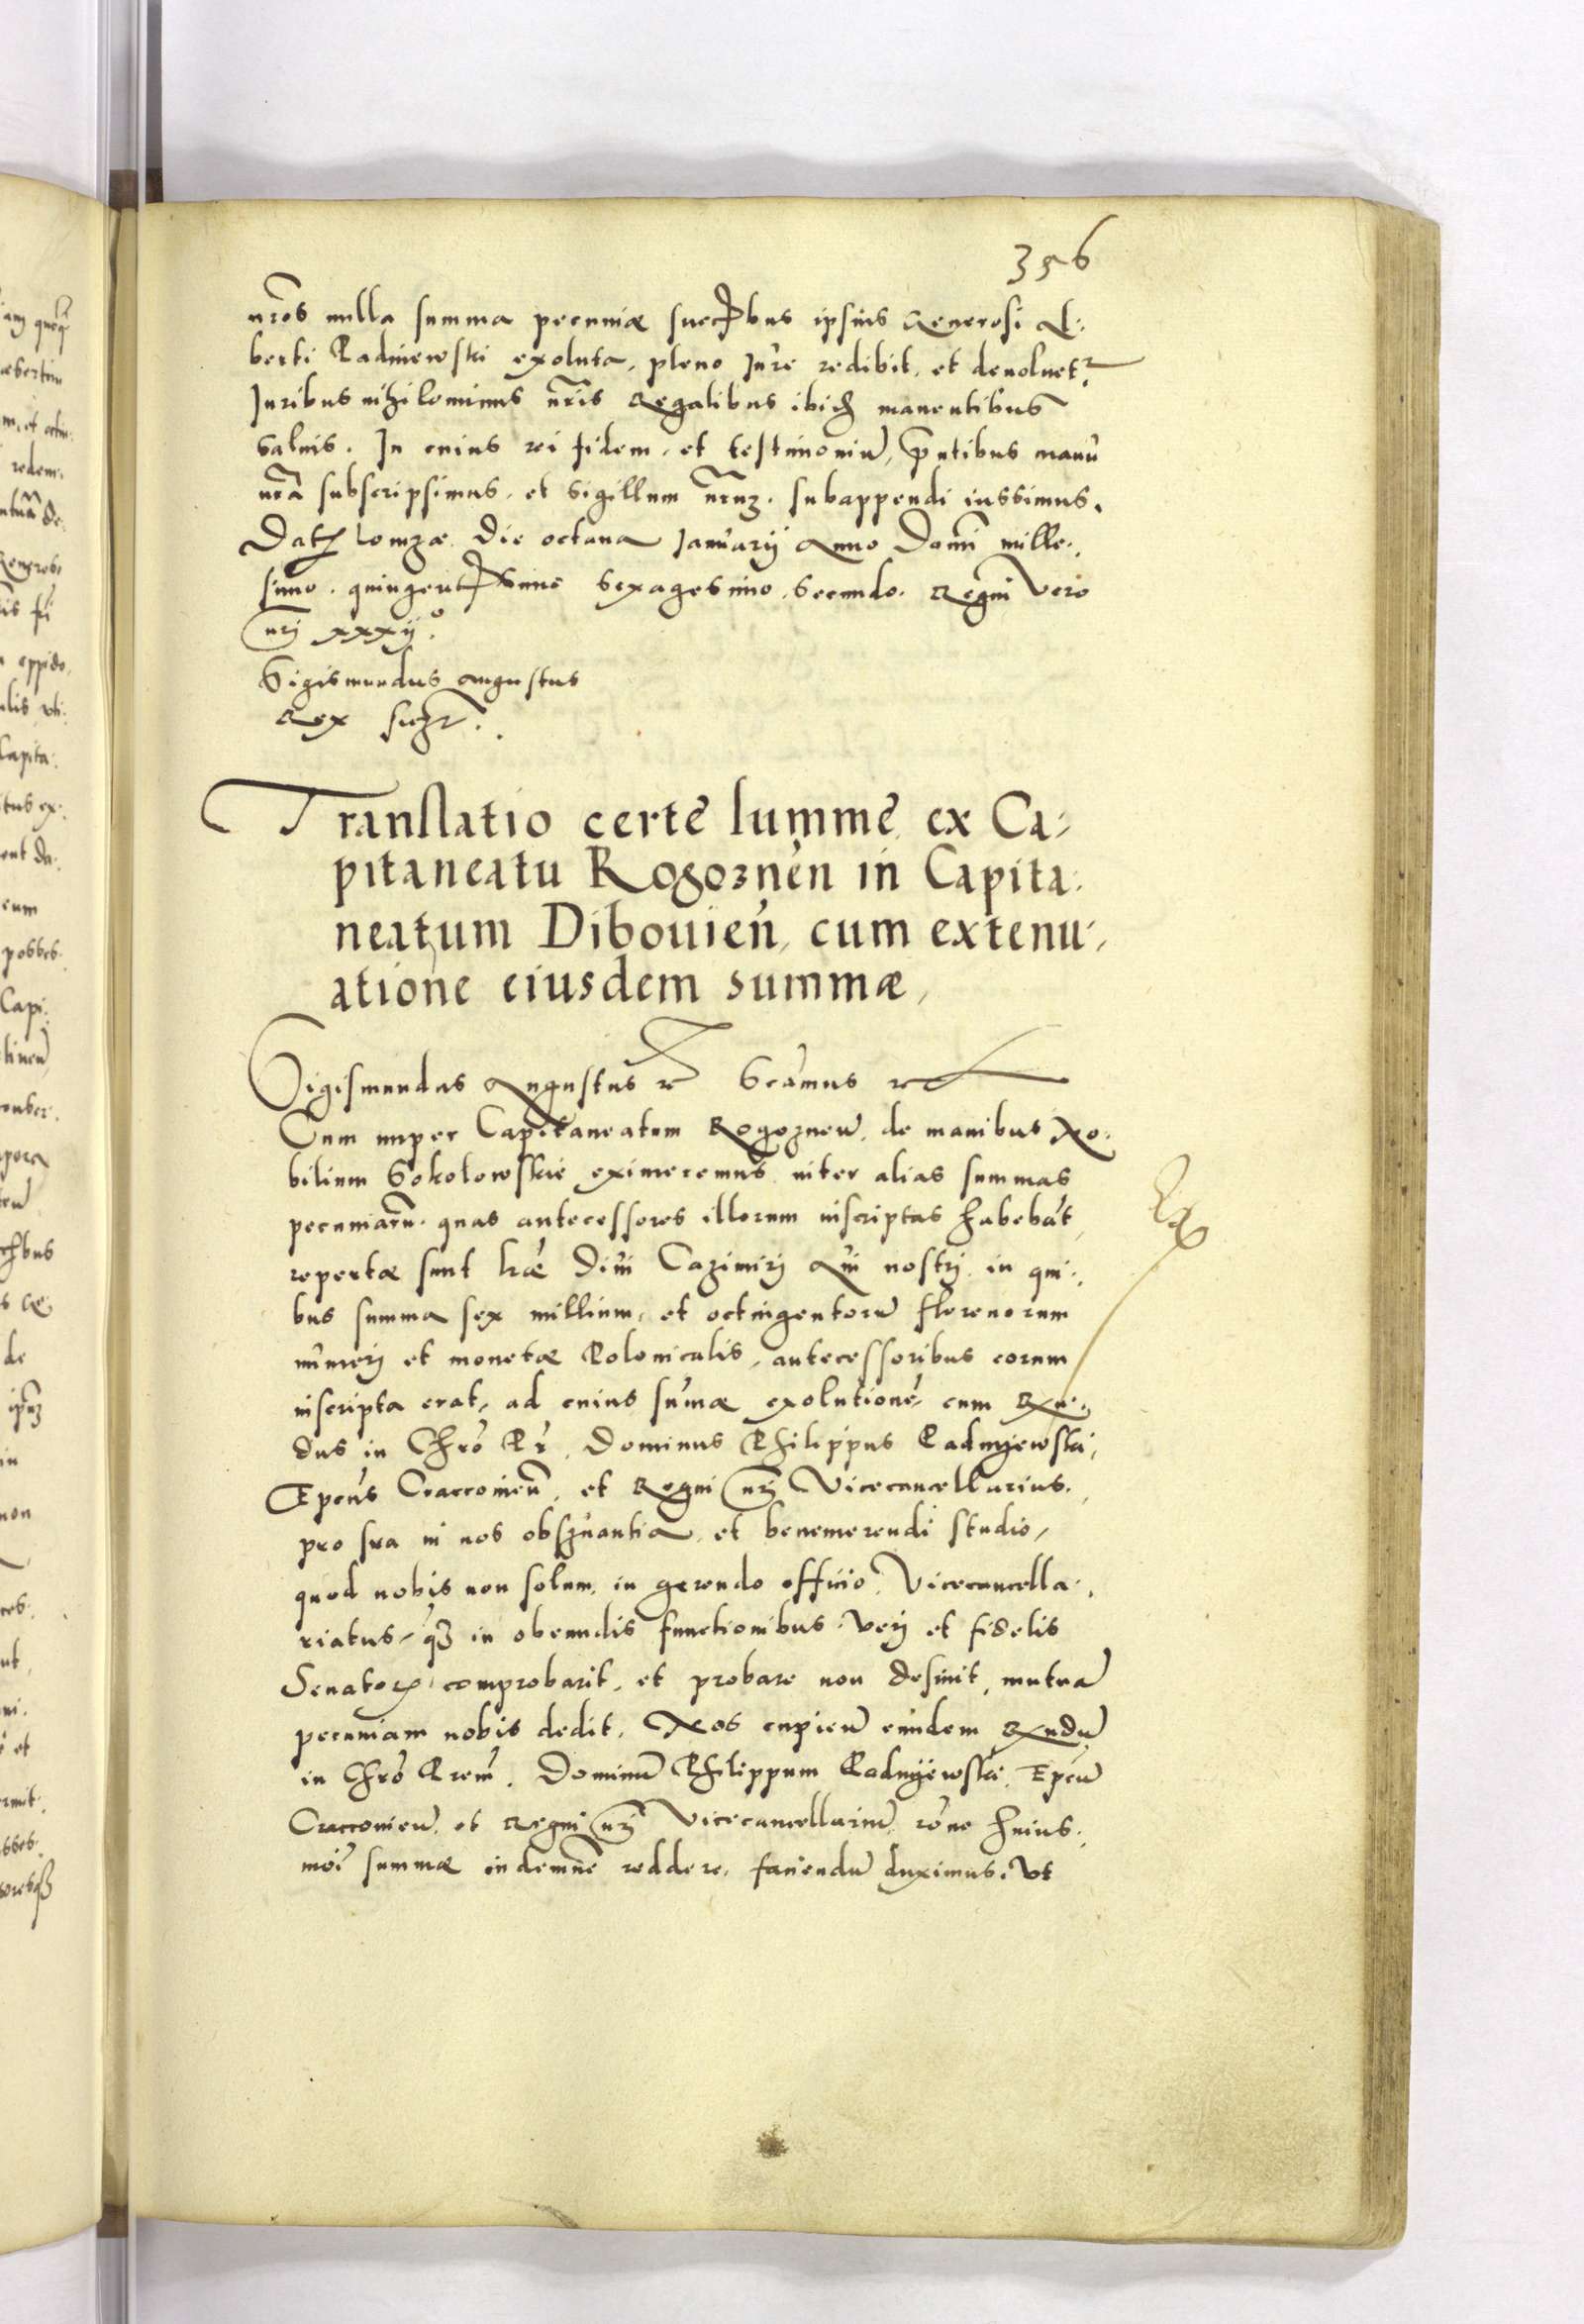 356
nr̃os nulla summa pecuniæ succ̃bus ipsius Generosi Al:
berti Padniewski exoluta, pleno Jure redibit, et devoluet:
Juribus nihilominus nr̃is Regalibus ibid̃ manentibus
salvis. In cuius rei fidem, et testimoniũ, p̃ntibus manũ
nr̃ã subscripsimus, et Sigillum nr̃uʒ. subappendi iussimus.
Datʒ Lomzæ Die octava Januarij Anno Domĩ mille:
simo. quingent̃simo Sexagesimo, Secundo. Regni Vero
nr̃j xxxij.º
Sigismundus Augustus
Rex sscrr̃.
Translatio certę summę ex Ca:
pitaneatu Rogoznẽn in Capita:
neatum Dibouieñ, cum extenu:
atione eiusdem summæ,
Sigismundus Augustus rc̃ Scãmus rc
Cum nuper Capitaneatum Rogozneñ. de manibus No:
bilium Sokolowskie eximeremus inter alias summas
pecuniarũ. quas antecessores illorum inscriptas habebãt,
repertæ sunt lr̃æ Divi Cazimirj Avi nostrj. in qui:
bus summa sex millium, et octingentorũ florenorum
numerj et monetæ Polonicalis, antecessoribus eorum
inscripta erat, ad cuius sum̃æ exolutionẽ, cum Rx̃n:
dus in Chrõ Pr̃. Dominus Philippus Padnyewski,
Epc̃us Cracovieñ, et Regni nr̃j Vicecancellarius.
pro sua in nos obsʒuantia, et benemerendi studio,
quod nobis non solum, in gerendo officio Vicecancella:
riatus, qʒ in obeundis functionibus Verj et fidelis
Senatorʒ comprobarit, et probare non desinit, mutuã
pecuniam nobis dedit. Nos cupieñ eundem Rx̃ndũ
in Chrõ Prem̃. Dominũ Philippum Padnyewski, Epc̃ũ
Cracovieñ. et Regni nr̃j Vicecancellariũ, rõne huius:
mõi summæ indemnẽ reddere, faciendũ duximus, Vt